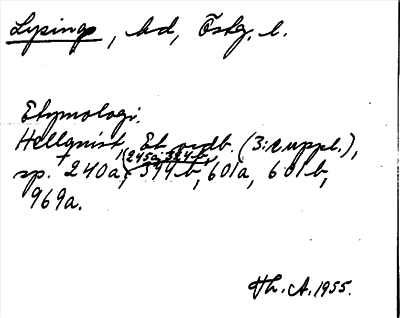 Lysings, hd, Östg. l.
Etymologi.
Hellquist, Et. ordb. (3:e uppl.),
(245a, 324b,
sp. 240a, 344b, 601a, 601b,
969a.
Th. A. 1955.